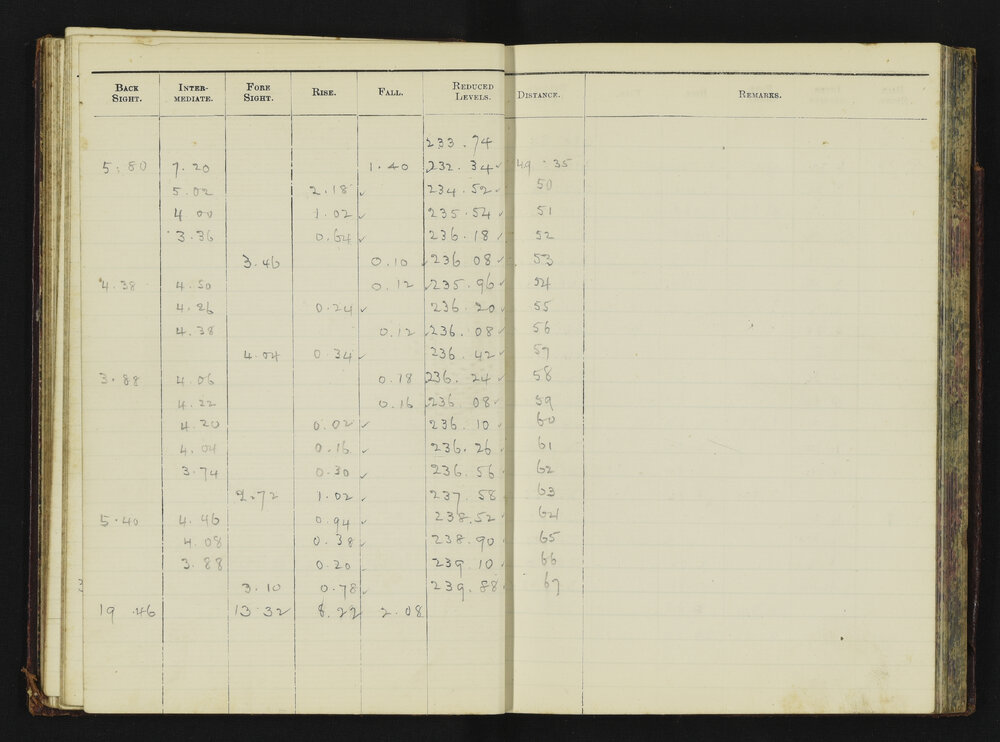 BACK SIGHT. INTER-MEDIATE. FORE SIGHT. RISE. FALL. REDUCED LEVELS. DISTANCE. REMARKS.
233.74
5.80 7.20 1.40 232.34 49.35
5.02 2.18 234.52 50
4.00 1.02 235.54 51
3.36 0.64 236.18 52
3.46 0.10 236.08 53
4.38 4.50 0.12 235.96 54
4.26 0.24 236.20 55
4.38 0.12 236.08 56
4.04 0.34 236.42 57
3.88 4.06 0.18 236.24 58
4.22 0.16 236.08 59
4.20 0.02 236.10 60
4.04 0.16 236.26 61
3.74 0.30 236.56 62
2.72 1.02 237.58 63
5.40 4.46 0.94 238.52 64
4.08 0.38 238.90 65
3.88 0.20 239.10 66
3.10 0.78 239.88 67
19.46 13.32 8.22 2.08